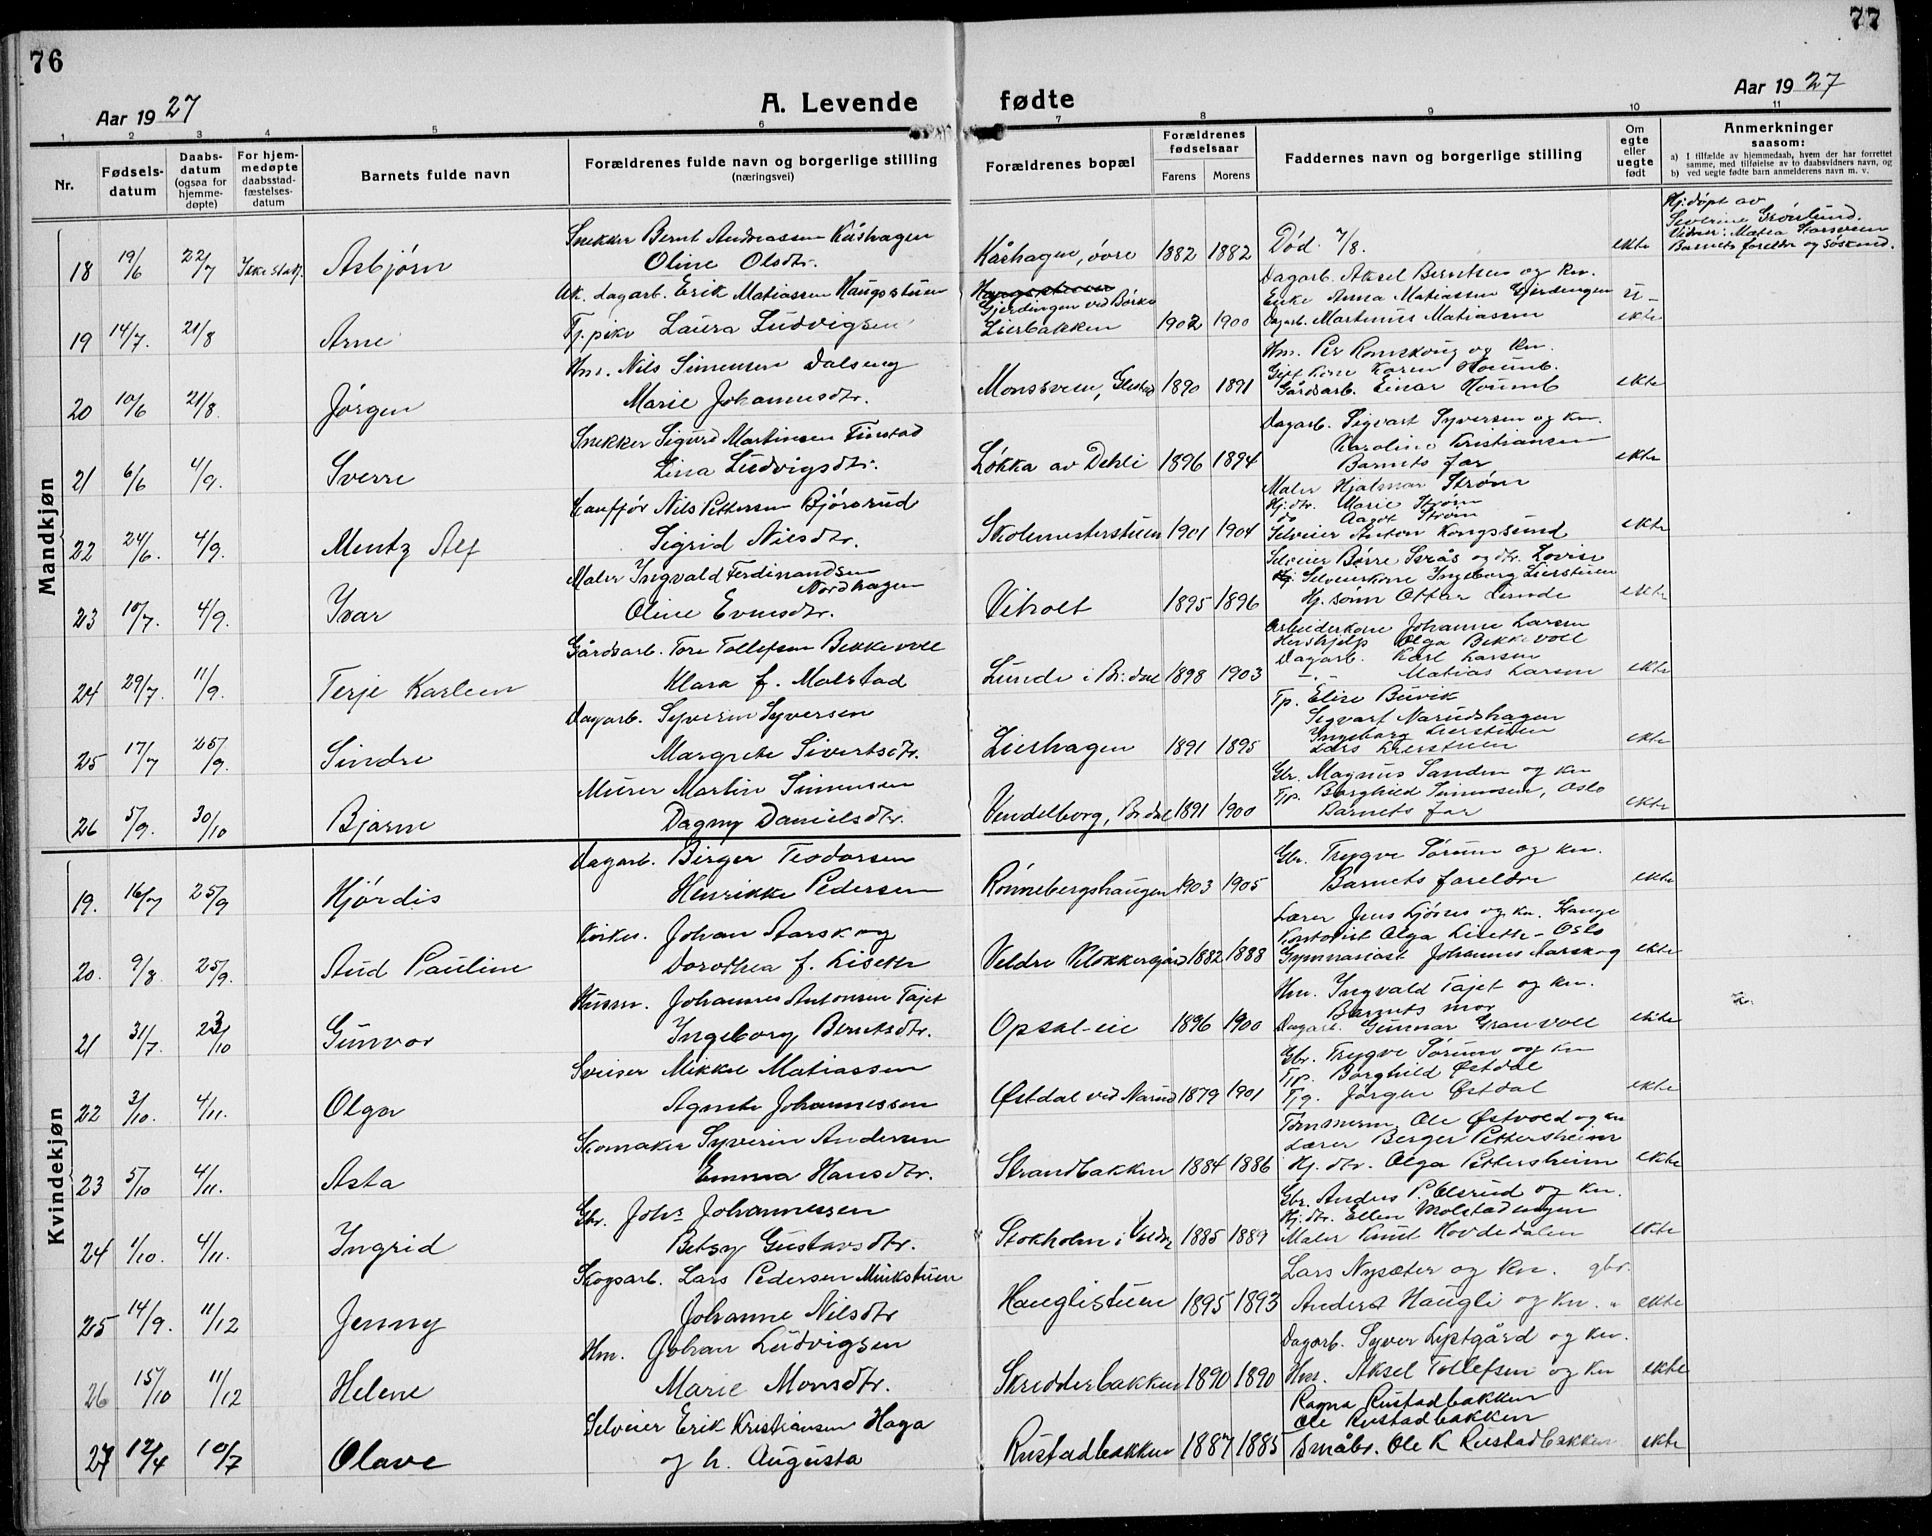 76
77
Aar 1927
A. Levende
fødte
Aar 1927
1 2 3 4 5 6 7 8 9 10 11
Nr.
Fødsels-
datum
Daabs-
datum
(ogsaa for
hjemme-
døpte)
For hjem-
medøpte
daabsstad-
fæstelses-
datum
Barnets fulde navn
Forældrenes fulde navn og borgerlige stilling
(næringsvei)
Forældrenes bopæl
Forældrenes
fødselsaar
Farens
Morens
Faddernes navn og borgerlige stilling
Om
egte
eller
uegte
født
Anmerkninger
saasom:
a) I tilfælde av hjemmedaab, hvem der har forrettet
samme, med tilføielse av to daabsvidners navn, og
b) ved uegte fødte barn anmelderens navn m. v.
Mandkjøn
Hj.døpt av
Severine
Vidner: Matea
Barnets foreldre og søskend.
Snekker Bernt Andreassen Kåshagen
18 19/6 22/7 Ikke stadf. Asbjørn Oline Olsdtr. Kåshagen, øvre 1882 1882 Død 7/8. ekte
Uk. dagarb. Erik Matiassen Haugsstuen
Gjerdingen ved Børke
Dagarb. Aksel Berntsen og kn.
Enke Anna Matiassen Gjerdingen
19 14/7. 21/8 Arne Tj.pike Laura Ludvigsen Lierbakken 1902 1900 Dagarb. Martinius Matiassen u-ekte
Hm. Nils Simensen Dalseng
Hm. Per Romskoug og kn.
Gift kone Karen Houmb.
20 10/6 21/8. Jørgen Marie Johannesdtr. Monssveen, Glestad 1890 1891 Gårdsarb. Einar Houmb ekte
Snekker Sigurd Martinsen Finstad
Dagarb. Sigvart Syversen og kn.
Karoline Kristiansen
21 6/6 4/9. Sverre Lina Ludvigsdtr. Løkka av Dehli 1896 1894 Barnets far ekte
Chauffør Nils Pettersen Bjørsrud
Maler Hjalmar Strøm
Hj.dtr. Marie Strøm
do Aagot Strøm
22 24/6. 4/9. Mentz Alf Sigrid Nilsdtr. Skolemesterstuen 1901 1904 Selveier Anton Kongssund ekte
Maler Ingvald Ferdinandsen
Nordhagen
Selveier Børre Svås og dtr. Lovise
Selveierkone Ingeborg Lierstuen
23 10/7. 4/9. Ivar Oline Evensdtr. Viholt 1895 1896 Hj. sønn Ottar Lunde ekte
Gårdsarb. Tore Tollefsen Bekkevoll
Arbeiderkone Johanne Larsen
Hushjelp Olga Bekkevoll
Dagarb. Karl Larsen
24 29/7. 11/9. Terje Karleen Klara f. Molstad Lunde i Br.dal 1898 1903 -"- Matias Larsen ekte
Dagarb. Syverin Syversen
Tp. Elise Buvik
Sigvart Narudshagen
Ingeborg Lierstuen
25 17/7 25/9. Sindre Margrete Sivertsdtr. Lieshagen 1891 1895 Lars Lierstuen ekte
Murer Martin Simensen
Gbr. Magnus Sanden og kn
Tjp. Borghild Simensen, Oslo
26 5/9. 30/10 Bjarne Dagny Danielsdtr. Vendelborg, Br.dal 1891 1900 Barnets far ekte
Kvindekjøn
Dagarb. Birger Teodorsen
Gbr. Trygve Sørum og kn.
19. 16/7 25/9 Hjørdis Henrikke Pedersen Rønnebergshaugen 1903 1905 Barnets foreldre ekte
Kirkes. Johan Aarskog
Lærer Jens Ljøsne og kn. Stange
Kontorist Olga Liseth - Oslo
20. 9/8. 25/9. Aud Pauline Dorothea f. Liseth Veldre Klokkergård 1882 1888 Gymnasiast Johannes Aarskog ekte
Husm. Johannes Antonsen Tajet
Hm. Ingvald Tajet og kn.
Barnets mor
21 31/7. 23/10 Gunvor Ingeborg Berntsdtr. Opsal-eie 1896 1900 Dagarb. Gunnar Granvoll ekte
Sveiser Mikkel Matiassen
Gbr. Trygve Sørum og kn
Tjp. Borghild Østdal
22 3/10. 4/11. Olga Agnete Johannessen Østdal ved Narud 1879 1901 Tjg. Jørgen Østdal ekte
Skomaker Syverin Andersen
Tømmerm. Ole Østvold og kn
Lærer Berger Pettersheim
23 5/10 4/11. Asta Emma Hansdtr. Strandbakken 1884 1886 Hj. dtr. Olga Pettersheim ekte
Gbr. Johs Johannessen
Gbr. Anders P. Olsrud og kn.
Hj.dtr. Ellen Molstadengen
24 1/10. 4/11. Ingrid Betsy Gustavsdtr. Stokholm i Veldre 1885 1889 Maler Knut Hovdedalen ekte
Skogsarb. Lars Pedersen Minkstuen
Lars Nysæter og kn. gbr.
25 14/9. 11/12 Jenny Johanne Nilsdtr Hauglistuen 1895 1893 Anders Haugli og kn. " ekte
Hm. Johan Ludvigsen
Dagarb. Syver Lystgård og kn.
26 15/10 11/12 Helene Marie Monsdtr. Skredderbakken 1890 1890 Hm. Aksel Tollefsen og kn ekte
Selveier Erik Kristiansen Haga
Ragna Rustadbakken
Ole Rustadbakken
27 12/4 10/7 Olave og h. Augusta Rustadbakken 1887 1885 Småbr. Ole K Rustadbakken ekte